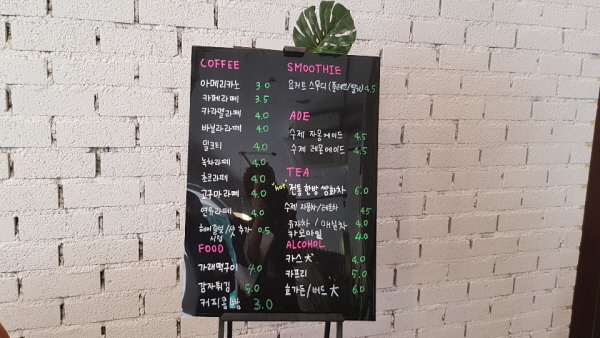 COFFEE
아메리카노 3.0
카페라떼 3.5
카라멜라떼 4.0
바닐라라떼 4.0
밀크티 4.0
녹차라떼 4.0
초코라떼 4.0
고구마라떼 4.0
연유라떼 4.0
헤이즐넛/샷 추가 0.5
시럽
FOOD
가래떡구이 4.0
감자튀김 5.0
커피콩빵 3.0
SMOOTHIE
요거트 스무디 (플레인/딸기) 4.5
ADE
수제 자몽에이드 4.5
수제 레몬에이드 4.5
TEA
"hot" 전통 한방 쌍화차 6.0
수제 자몽차/레몬차 4.5
유자차 / 매실차 4.0
카모마일 4.0
ALCOHOL
카스 大 4.0
카프리 5.0
호가든/버드 大 6.0